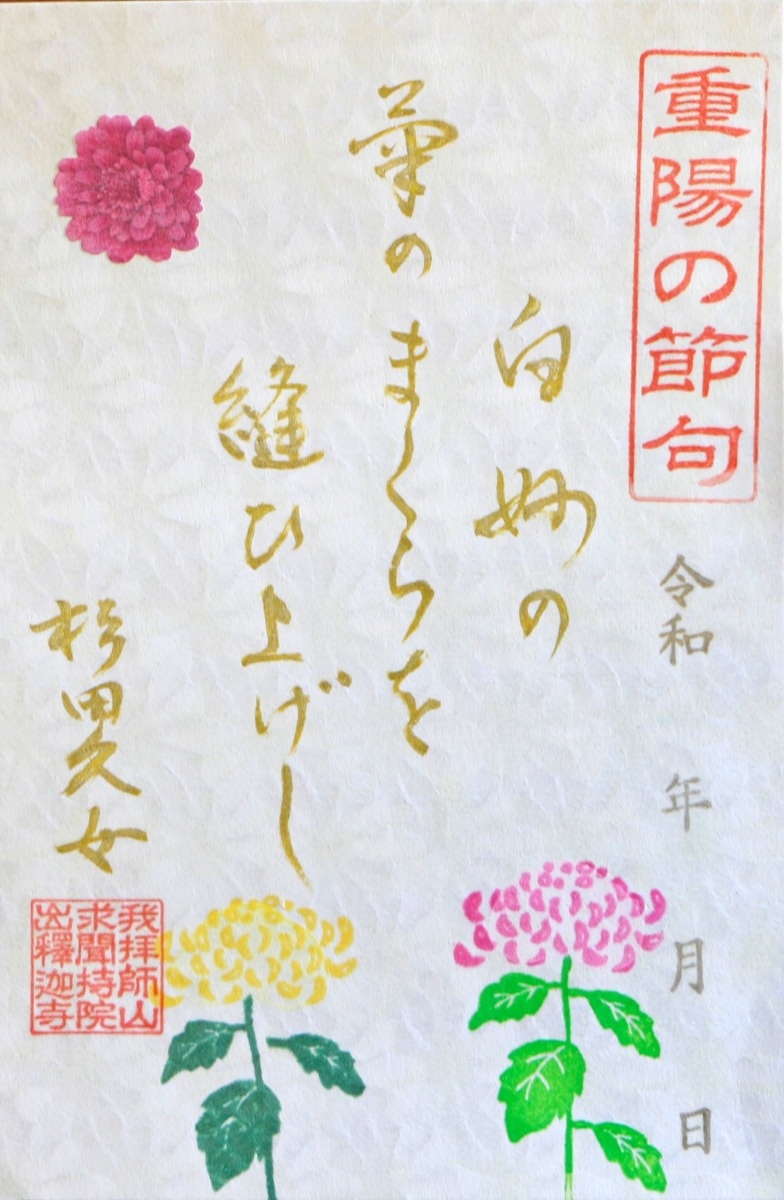 重陽の節句
令和　年　月　日
白妙の
菊のまくらを
縫ひ上げし
杉田久女
我拝師山
求聞持院
出釋迦寺